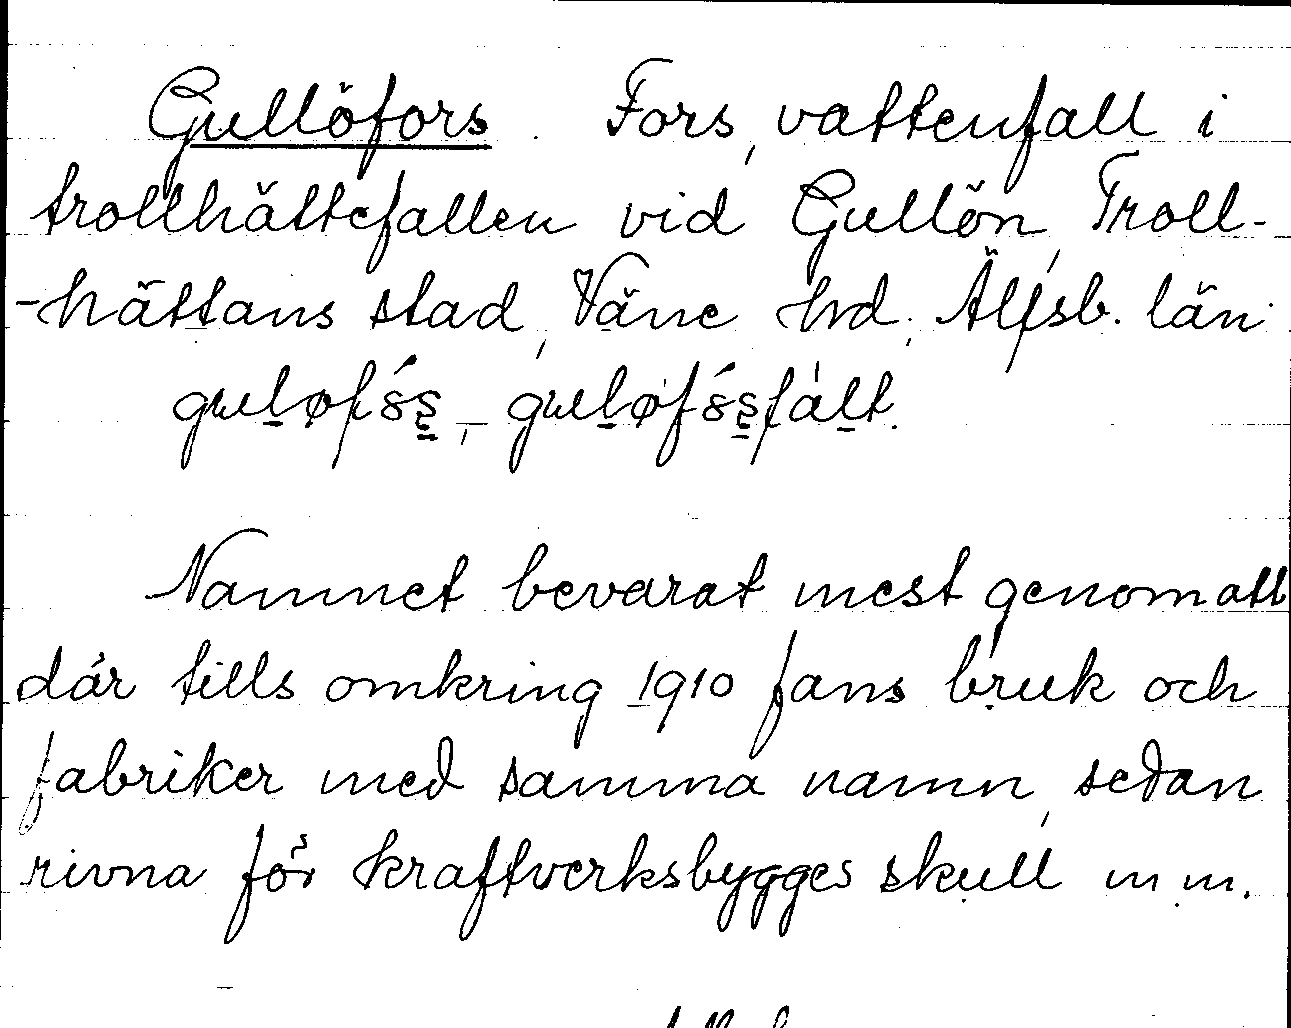 Gullöfors. Fors, vattenfall i
trollhättefallen vid Gullön, Troll-
-hättans stad, Väne hrd. Älfsb. län

Namnet bevarat mest genom att
där tills omkring 1910 fans bruk och
fabriker med samma namn, sedan
rivna för kraftverksbygges skull m.m.